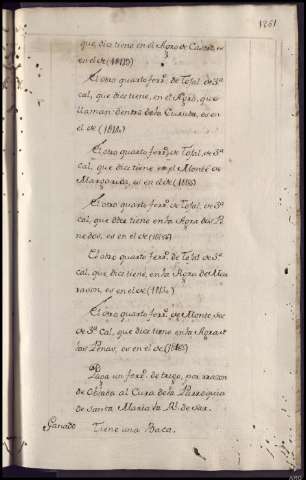 1261
que dice tiene en el Agro de
en el de (1811)
El otro quarto ferr.º de Tojal, de 3ª
cal, que dice tiene, en el Agro, que
llaman dentro de la, es en
el de (1814)
El otro quarto ferr.º de Tojal, de 3ª
cal, que dice tiene en el Monte de
Margarida, es en el de
El otro quarto ferr.º de Tojal, de 3ª
cal, que dice tiene en la Agra dos Pe
nedos, es en el de
El otro quarto ferr.º de Tojal, de 3ª
cal, que dice tiene, en la Agra de
es en el de
El otro quarto ferr.º de Monte
de 3ª Cal, que dice tiene en la Agra
das Penas, es en el de
Paga un ferr.º de trigo, por razon
de Oblata al Cura de la Parroquia
de Santa Maria la Rl. de Sar.
Ganado Tiene una Baca.